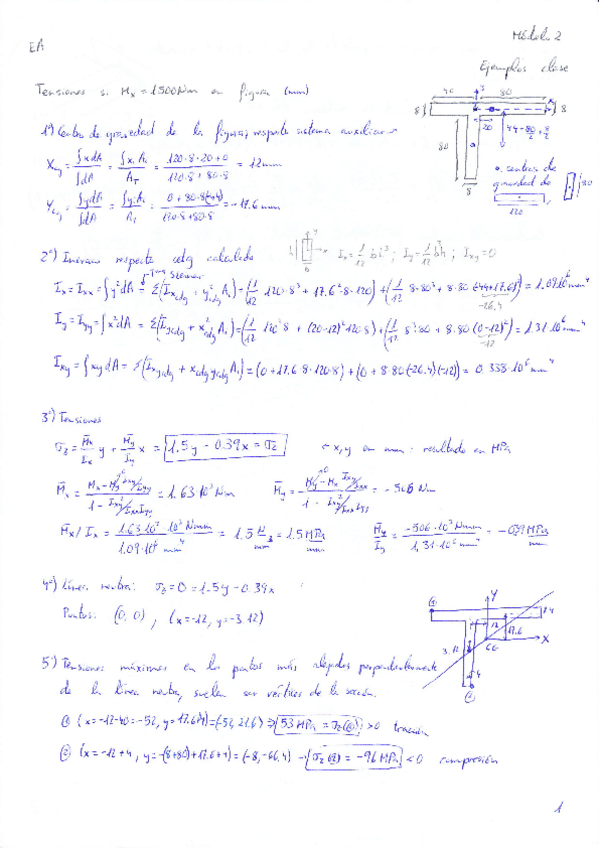 EA
Módulo 2
Ejemplos clase
Tensiones si Mx = 1500 Nm en figura (mm)
40 80
8 8
20
80
8
44 = 80/2 + 8/2
centros de gravedad de
80
120
1º) Centro de gravedad de la figura, respecto sistema auxiliar
Xcg = ∫xdA / ∫dA = ∫xi Ai / AT = (120·8·20 + 0) / (120·8 + 80·8) = 12 mm
Ycg = ∫ydA / ∫dA = ∫yi Ai / AT = (0 + 80·8·(-44)) / (120·8 + 80·8) = -17.6 mm
2º) Inercias respecto cdg calculado
h b x Ix = 1/12 b h³ ; Iy = 1/12 b³h ; Ixy = 0
Teorema Steiner
Ix = Ixx = ∫y²dA = Σ(Ixcdg + y²cdg Ai) = (1/12 120·8³ + 17.6²·8·120) + (1/12 8·80³ + 8·80 (-44+17.6)²) = 1.09·10⁶ mm⁴
-26.4
Iy = Iyy = ∫x²dA = Σ(Iycdg + x²cdg Ai) = (1/12 120³·8 + (20-12)²·120·8) + (1/12 8³·80 + 8·80 (0-12)²) = 1.31·10⁶ mm⁴
-12
Ixy = ∫xy dA = Σ(Ixycdg + xcdg ycdg Ai) = (0 + 17.6·8·120·8) + (0 + 8·80(-26.4)(-12)) = 0.338·10⁶ mm⁴
3º) Tensiones
σz = M̄x/Ix y + M̄y/Iy x = 1.5y - 0.39x = σz ← x, y en mm : resultado en MPa
M̄x = (Mx - My Ixy/Iyy) / (1 - Ixy²/IxxIyy) = 1.63·10³ Nm M̄y = (My - Mx Ixy/Ixx) / (1 - Ixy²/IxxIyy) = -506 Nm
M̄x/Ix = 1.63·10³·10³ Nmm / 1.09·10⁶ mm⁴ = 1.5 N/mm³ = 1.5 MPa/mm M̄y/Iy = -506·10³ Nmm / 1.31·10⁶ mm⁴ = -0.39 MPa/mm
4º) Línea neutra: σz = 0 = 1.5y - 0.39x
Puntos: (0,0) , (x=-12, y=-3.12)
Y
12
17.6
3.12
CG
X
4
5º) Tensiones máximas en los puntos más alejados perpendicularmente
de la línea neutra, suelen ser vértices de la sección.
① (x = -12-40 = -52, y = 17.6+4) = (-52, 21.6) ⇒ 53 MPa = σz(①) > 0 tracción
② (x = -12+4, y = -(8+80)+17.6+4) = (-8, -66.4) → σz(②) = -96 MPa < 0 compresión
1